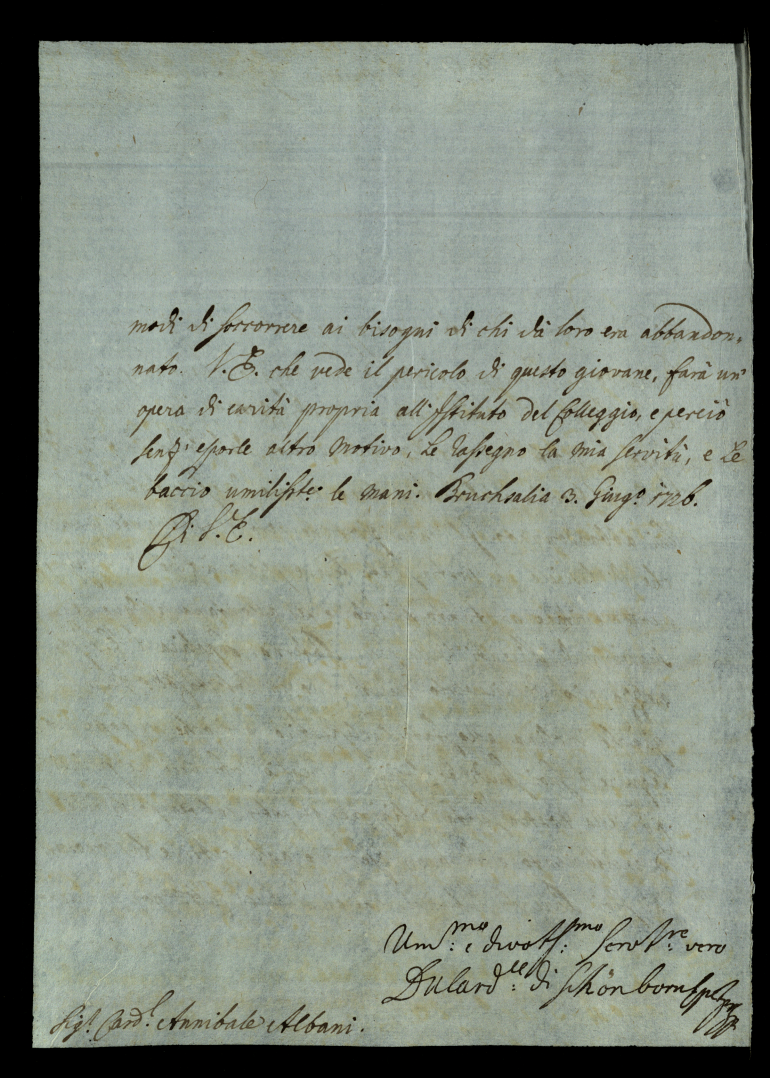 modi di soccorrere ai bisogni di chi dà loro era abbandon=
nato. V. E. che vede il pericolo di questo giovane, farà un'
opera di carità propria all'Istituto del Colleggio, e perciò
senz' esporle altro motivo, Le rassegno la mia servitù, e Le
baccio umilisste: le mani. Bruchsalia 3. Giugo. 1726.
Di V. E.
Ummo: e divotsmo: servtre: vero
DHCardle: di Schönborn
Sigr. Cardl. Annibale Albani.